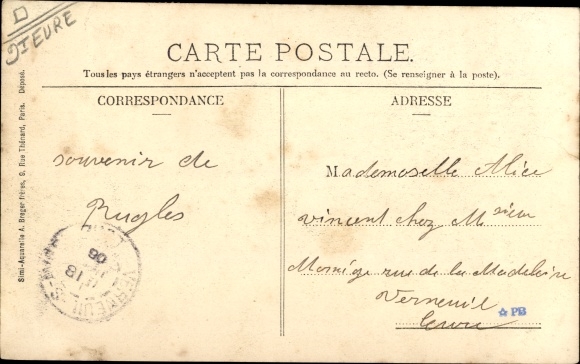 DT EURE
CARTE POSTALE.
Tous les pays étrangers n'acceptent pas la correspondance au recto. (Se renseigner à la poste).
CORRESPONDANCE
ADRESSE
souvenir de
Rugles
Mademoselle Alice
vincent chez Msieur
rue de la Madeleine
Verneuil
Eure
Simi-Aquarelle A. Breger frères, 9, Rue Thénard, Paris. Déposé.
VERNEUIL
18
06
PB